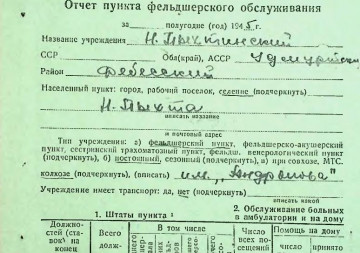 Отчет пункта фельдшерского обслуживания
за полугодие (год) 1945 г.
Название учреждения Н. Пыхтинский
ССР Обл(край), АССР Удмуртск
Район
Населенный пункт: город, рабочий поселок, селение (подчеркнуть)
Н. Пыхта
вписать название
и почтовый адрес
Тип учреждения: а) фельдшерский пункт, фельдшерско-акушерский
пункт, сестринский трахоматозный пункт, фельдш. венерологический пункт
(подчеркнуть) б) постоянный, сезонный (подчеркнуть), в) при совхозе, МТС.
колхозе (подчеркнуть), (вписать) им. „Андронова"
вписать какой
Учреждение имеет транспорт: да, нет (подчеркнуть)
1. Штаты пункта ¹
2. Обслуживание больных
в амбулатории и на дому
Должнос-
тей (ста-
вок) на
конец
Всего
долж-
В том числе
Число
всех по-
сещений
Помощь на дому
число
принято